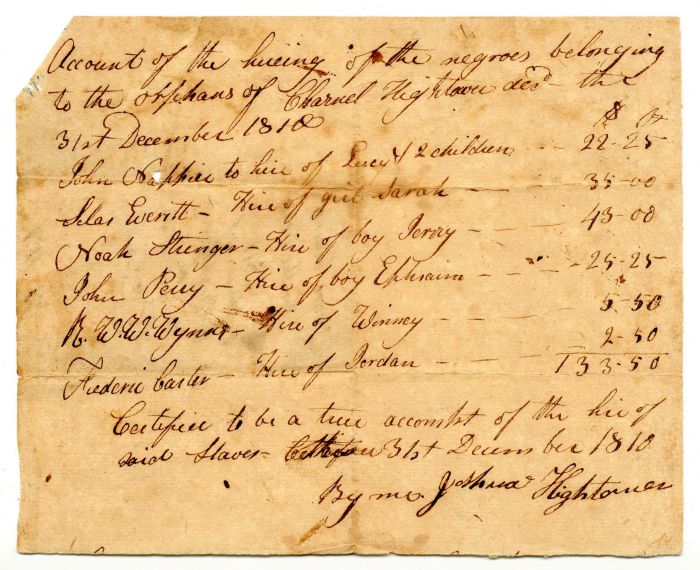 Account of the hireing of the negroes belonging
to the orphans of Charnel Hightower decd the
31st December 1810
$ cts
John Nappier to hire of Lucy & 2 children - - 22-25
Silas Everitt - Hire of girl Sarah - - - 35-00
Noah Stringer - Hire of boy Jerry - - - 43-00
John Perry - Hire of boy Ephraim - - - - 25-25
R. W. W. Wynne - Hire of Winney - - - 5-50
Frederic Carter - Hire of Jordan - - - 2-50
133-50
Certifier to be a true accompt of the hire of
said Slaves - 31st December 1810
By me Joshua Hightower